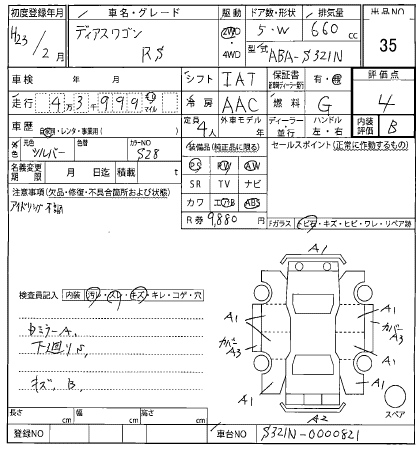 初度登録年月 車名・グレード 駆動 ドア数・形状 排気量 出品NO
H23/2月 ディアスワゴン RS 2WD・4WD 5・W 660cc 35
型式 ABA-S321N
車検 年 月 シフト IAT 保証書 有・無 評価点
走行 4万3千999 km マイル 冷房 AAC 燃料 G 4
車歴 自家用・レンタ・事業用( ) 定員 4人 外車モデル 年 ディーラー・並行 ハンドル 左・右 内装評価 B
外色 元色 シルバー カラーNO S28 装備品(純正品に限る) セールスポイント(正常に作動するもの)
名義変更期限 月 日迄 積載 t PS PW AW
注意事項(欠品・修復・不具合箇所および状態) SR TV ナビ
アイドリング不調 カワ エアB ABS
R券 9,880円 Fガラス トビ石・キズ・ヒビ・ワレ・リペア跡
A1
検査員記入 内装 汚レ・スレ・キズ・キレ・コゲ・穴
A1 A1
ミラーA. カバーA3 カバーA3
下廻りS,
キズ, B, A1 A1
スペア
長さ cm 幅 cm 高さ cm A2
登録NO 車台NO S321N-0000821